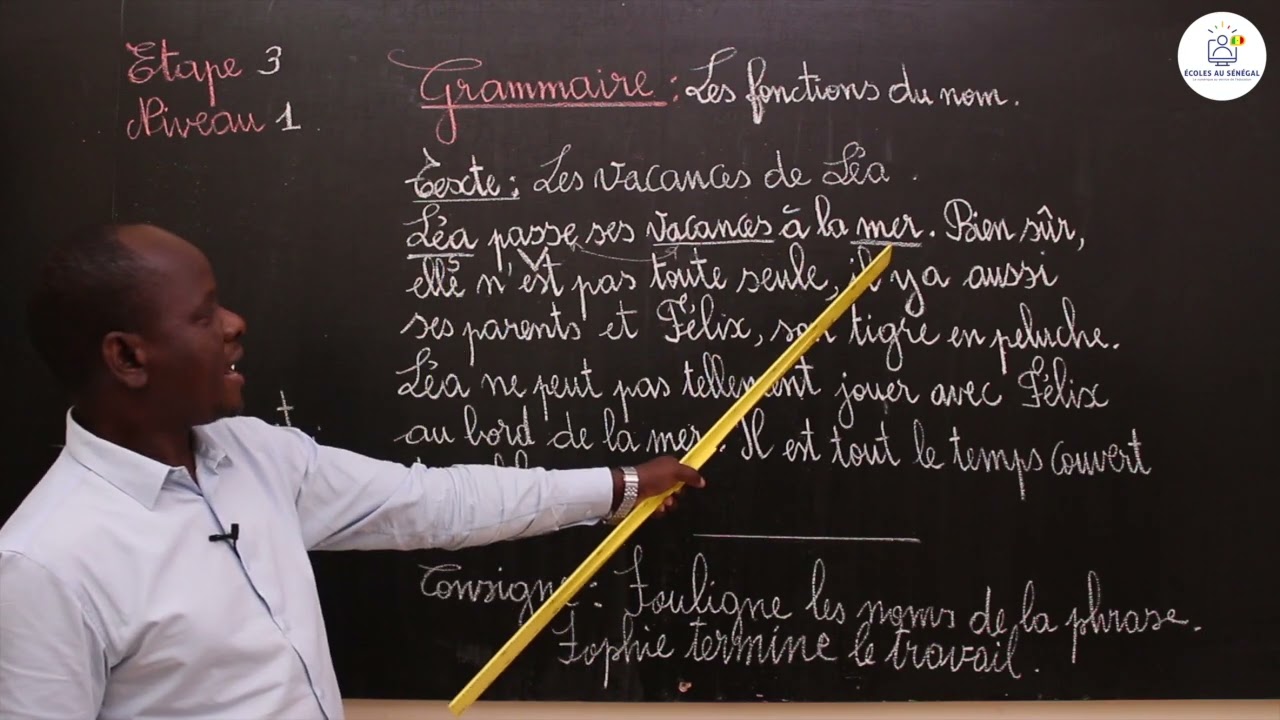 Etape 3
Niveau 1
Grammaire : Les fonctions du nom.
Texte : Les vacances de Léa.
Léa passe ses vacances à la mer. Bien sûr,
S V
elle n'est pas toute seule, il y a aussi
ses parents et Félix, son tigre en peluche.
Léa ne peut pas tellement jouer avec Félix
au bord de la mer. Il est tout le temps couvert
t
Consigne : Souligne les noms de la phrase.
Sophie termine le travail.
ÉCOLES AU SÉNÉGAL